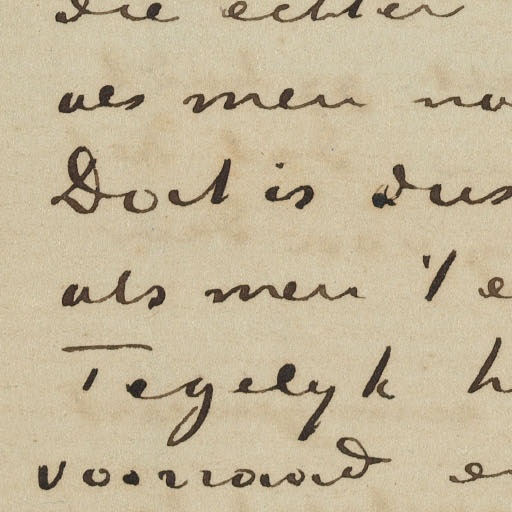 die echter
als men no
Dat is dus
als men 't e
Tegelyk h
voorraad en